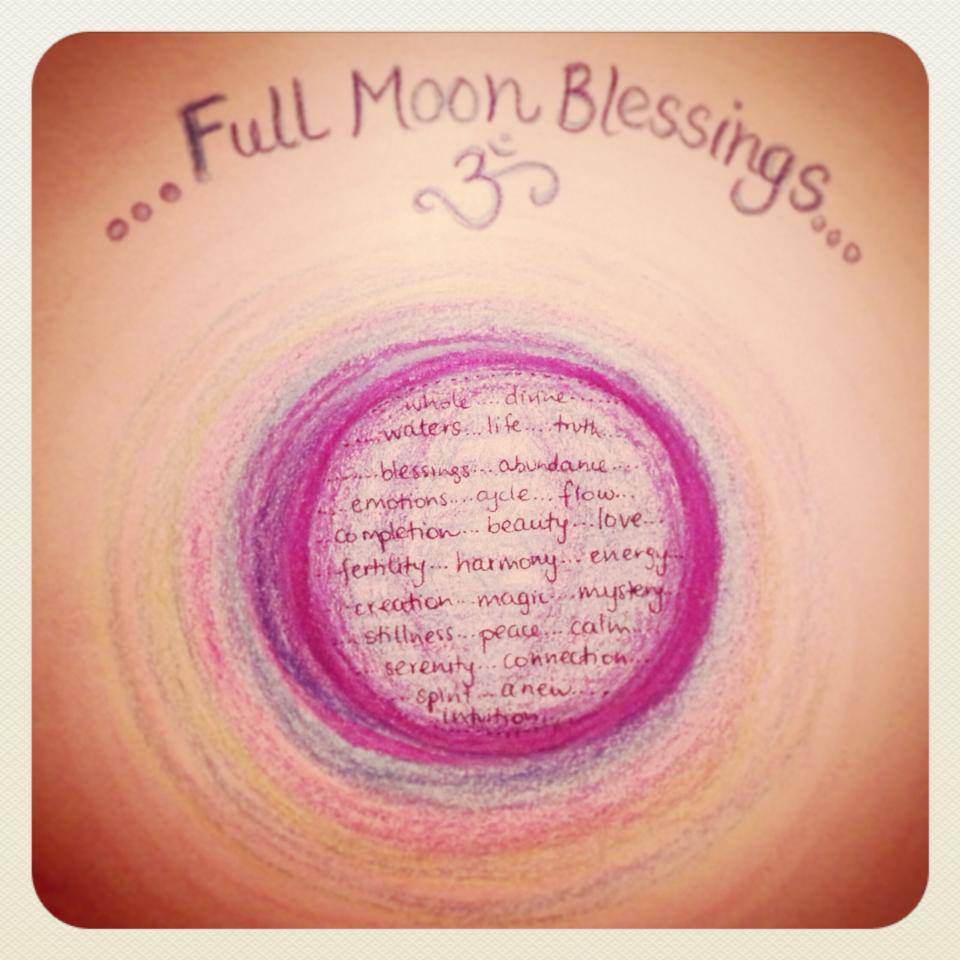 ...Full Moon Blessings...
ॐ
whole... divine......
.....waters... life... truth...
......blessings... abundance.....
... emotions.... cycle... flow...
completion... beauty... love...
...fertility... harmony... energy...
..creation... magic... mystery..
... stillness... peace... calm...
... serenity... connection...
.. spirit... anew....
intuition...